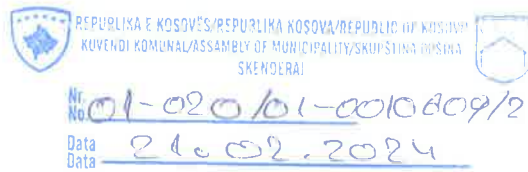 REPUBLIKA E KOSOVËS/REPUBLIKA KOSOVA/REPUBLIC OF KOSOVO
KUVENDI KOMUNAL/ASSAMBLY OF MUNICIPALITY/SKUPŠTINA OPŠINA
SKENDERAJ
Nr.
No. 01-020/01-0010609/2
Data
Data 21.02.2024